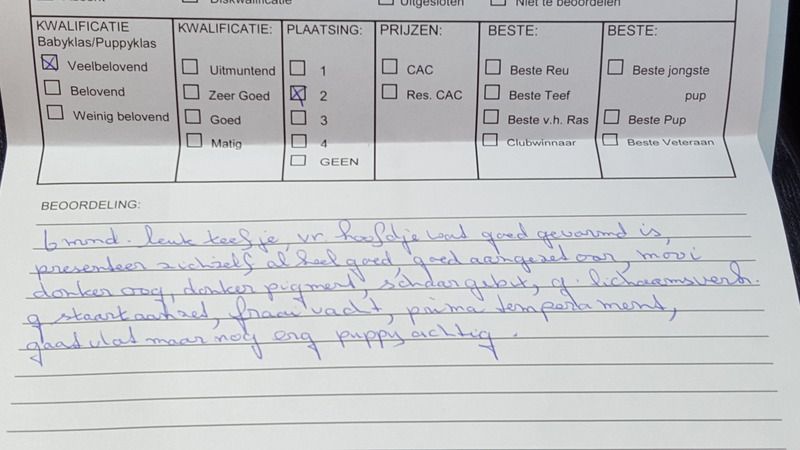 Diskwalificatie
Uitgesloten
Niet te beoordelen
KWALIFICATIE
Babyklas/Puppyklas
Veelbelovend
Belovend
Weinig belovend
KWALIFICATIE:
Uitmuntend
Zeer Goed
Goed
Matig
PLAATSING:
1
2
3
4
GEEN
PRIJZEN:
CAC
Res. CAC
BESTE:
Beste Reu
Beste Teef
Beste v.h. Ras
Clubwinnaar
BESTE:
Beste jongste
pup
Beste Pup
Beste Veteraan
BEOORDELING:
6 mnd. leuk teefje, vr. hoofdje wat goed gevormd is,
presenteer zichzelf al heel goed, goed aangezet oor, mooi
donker oog, donker pigment, schaargebit, g. lichaamsverh.
g staartaanzet, fraai vacht, prima temperament,
gaat vlot maar nog erg puppyachtig.